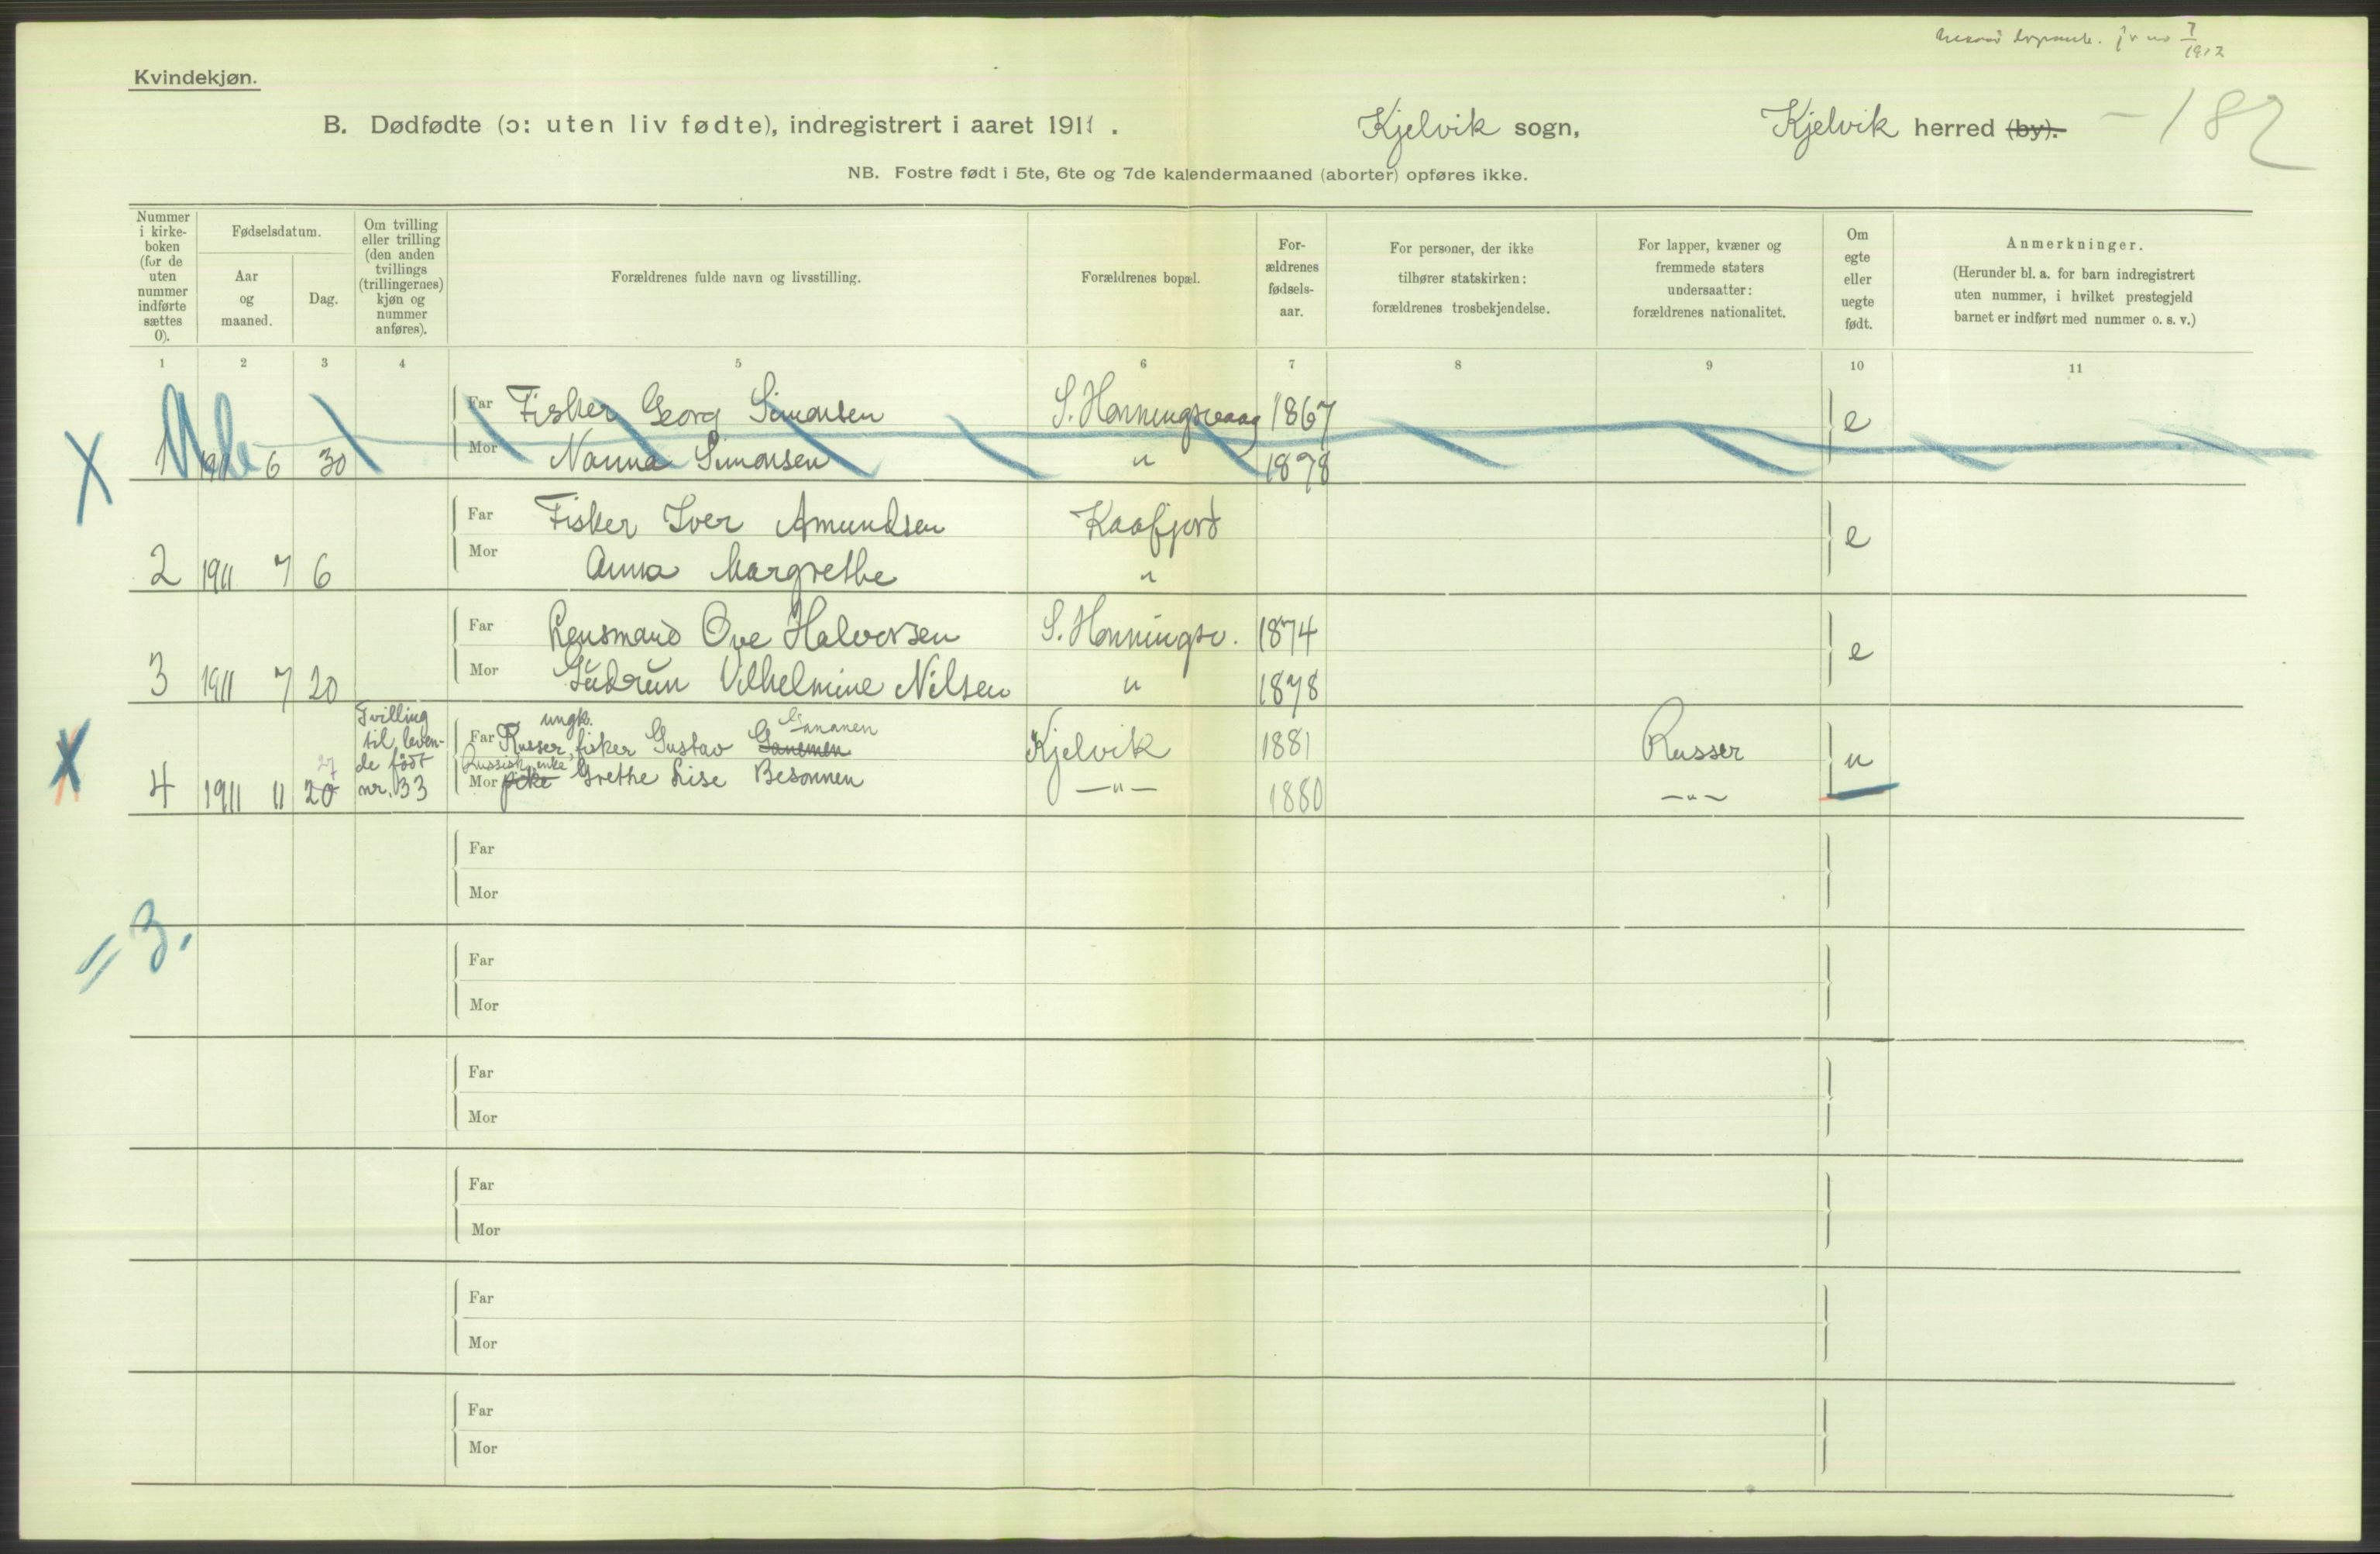 7
1912
Kvindekjøn.
B. Dødfødte (ɔ: uten liv fødte), indregistrert i aaret 1911. Kjelvik sogn, Kjelvik herred (by). – 182
NB. Fostre født i 5te, 6te og 7de kalendermaaned (aborter) opføres ikke.
Nummer i kirke-boken (for de uten nummer indførte sættes 0).
Fødselsdatum.
Aar og maaned.
Dag.
Om tvilling eller trilling (den anden tvillings (trillingernes) kjøn og nummer anføres).
Forældrenes fulde navn og livsstilling.
Forældrenes bopæl.
For-ældrenes fødsels-aar.
For personer, der ikke tilhører statskirken: forældrenes trosbekjendelse.
For lapper, kvæner og fremmede staters undersaatter: forældrenes nationalitet.
Om egte eller uegte født.
Anmerkninger.
(Herunder bl. a. for barn indregistrert uten nummer, i hvilket prestegjeld barnet er indført med nummer o. s. v.)
1 2 3 4 5 6 7 8 9 10 11
Far Fisker Georg Simonsen S. Honningsvaag 1867 e
X 1 1911 6 30 Mor Nanna Simonsen " 1878
Far Fisker Iver Amundsen Kaafjord e
2 1911 7 6 Mor Anna Margrethe "
Far Lensmand Ove Halvorsen S. Honningsv. 1874 e
3 1911 7 20 Mor Gudrun Vilhelmine Nilsen " 1878
Tvilling til leven-de født nr. 33
ungk.
Far Russer, fisker Gustav Kjelvik 1881 Russer u
Russisk enke
X 4 1911 11 20 27 Mor pike Grethe Lise Besonnen —"— 1880 —"—
Far
Mor
= 3.
Far
Mor
Far
Mor
Far
Mor
Far
Mor
Far
Mor